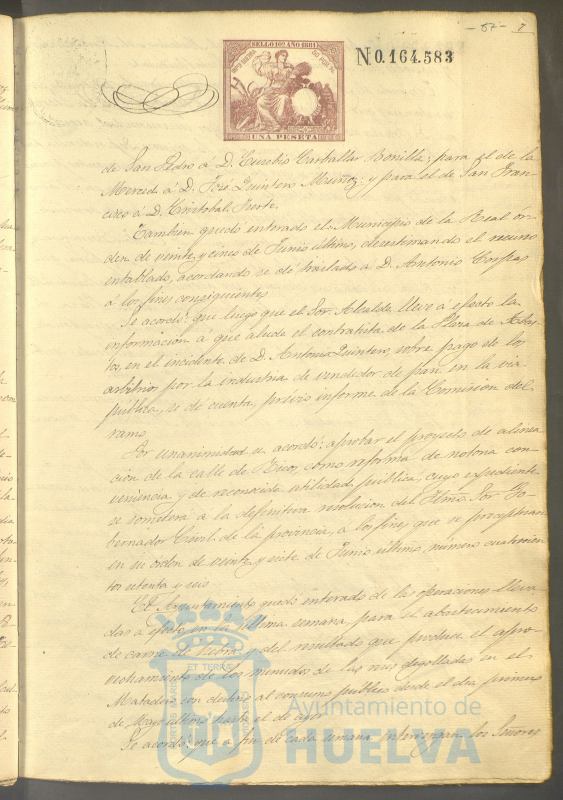 - 57 - 7
SELLO 10º AÑO 1881
UNA PESETA
N 0.164.583
de San Pedro á D. Eusebio Carballar Bonilla; para el de la
Merced á D. José Quintero Muñoz; y para el de San Fran-
cisco á D. Cristobal Fuerte.
Tambien quedó enterado el Municipio de la Real ór-
den de veinte y cinco de Junio último, desestimando el recurso
entablado, acordando se dé traslado á D. Antonio
á los fines consiguientes
Se acordó: que luego que el Sor. Alcalde lleve á efecto la
informacion á que alude el contratista de la Plaza de Abas-
tos, en el incidente de D. Antonio Quintero, sobre pago de los
arbitrios por la industria de vendedor de pan en la via
pública, se dé cuenta, previo informe de la Comision del
ramo.
Por unanimidad se acordó: aprobar el proyecto de alinea-
cion de la calle de Rico, como reforma de notoria con-
veniencia y de reconocida utilidad pública, cuyo expediente
se someterá á la definitiva resolucion del Iltmo. Sor. Go-
bernador Civil de la provincia, á los fines que se preceptuan
en su órden de veinte y siete de Junio último, número cuatrocien
tos setenta y seis
El Ayuntamiento quedó enterado de las operaciones lleva-
das á efecto en la última semana para el abastecimiento
de carne de hebra y del resultado que produce el apro-
vechamiento de los menudos de las reses degolladas en el
Matadero con destino al consumo público desde el dia primero
de Mayo último hasta el de ayer
Se acordó: que á fin de cada semana intervengan los Señores
ET TERRÆ
Ayuntamiento de
HUELVA